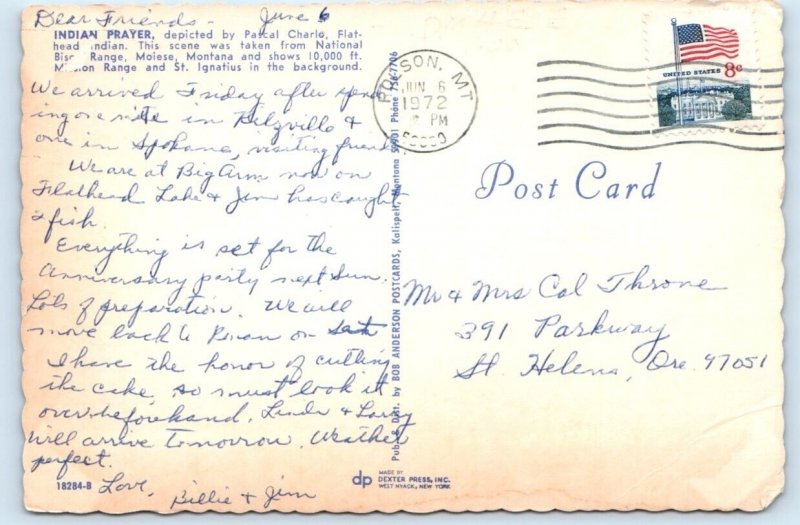 Dear Friends - June 6
INDIAN PRAYER, depicted by Pascal Charlo, Flat-
head Indian. This scene was taken from National
Bison Range, Moiese, Montana and shows 10,000 ft.
Mission Range and St. Ignatius in the background.
We arrived Friday after spend
ing one nite in Ritzville &
one in Spokane, visiting friends.
We are at Big Arm now on
Flathead Lake & Jim has caught
2 fish.
Everything is set for the
Anniversary party next Sun.
Lots of preparation. We will
move back to Ronan on Sat
I have the honor of cutting
the cake, so must look it
over beforehand. Linda & Larry
will arrive tomorrow. Weather
perfect.
Love,
Billie & Jim
18284-B
Pub. & Dist. by BOB ANDERSON POSTCARDS, Kalispell, Montana 59901 Phone 756-7706
dp
MADE BY
DEXTER PRESS, INC.
WEST NYACK, NEW YORK
POLSON, MT
JUN 6
1972
PM
UNITED STATES 8c
Post Card
Mr & Mrs Cal Throne
391 Parkway
St. Helens, Ore. 97051